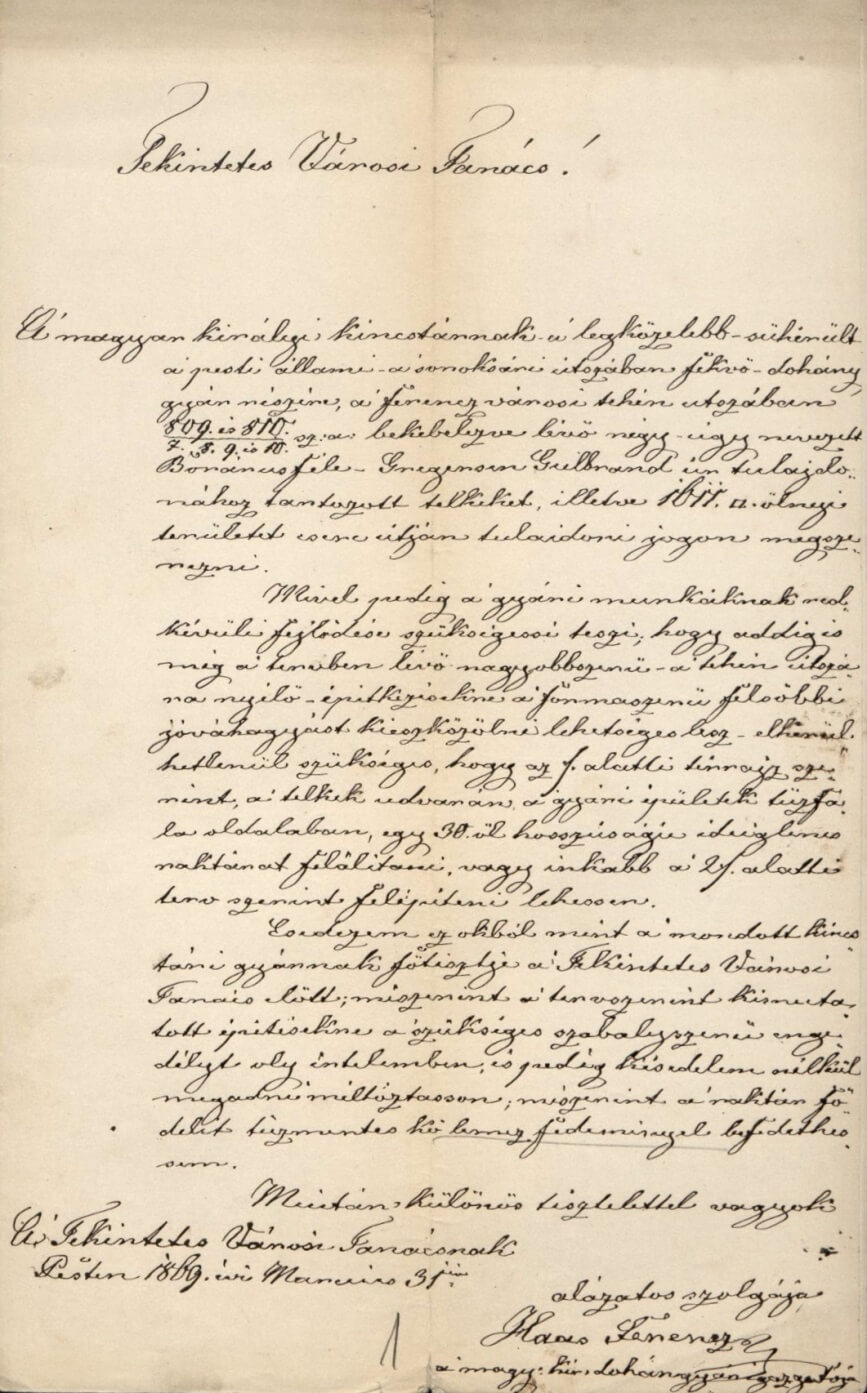 Tekintetes Városi Tanács!
A' magyar királyi kincstárnak a' legközelebb sükerült
a' pesti állami - a' soroksári útszában fekvő - dohány
gyár részére, a' Ferencz városi tehén utszában
809. és 810.
7. 8. 9. és 10. sz: a: bekebelezve lévő négy - úgy nevezett
féle - Gregersen Gulbrand úr tulajdo-
nához tartozott telkeket, illetve 1611. □. ölnyi
területet csere útján tulaidoni jogon megsze-
rezni.
Mivel pedig a' gyári munkáknak red-
kévüli fejlődése szükségessé teszi, hogy addig is
míg a' tervben lévő nagyobbszerü - a' tehén útszá-
ra nyíló - építkezésekre a' formaszerü felsőbbi
jóváhagyást kieszközölni lehetséges lesz - elkerül-
hetlenül szükséges, hogy az /. alatti térrajz sze-
rint, a' telkek udvarán, a' gyári épületek tüzfa-
la oldalában, egy 30. öl hosszúságú ideiglenes
raktárat felálitani, vagy inkább a' 2/. alatti
terv szerint felépíteni lehessen.
Esedezem ez okból mint a' mondott kincs
tári gyárnak főtisztje a' Tekintetes Városi
Tanács előtt; miszerint a' tervszerint kimuta-
tott építésekre a szükséges szabályszerü enge-
délyt oly értelemben, és pedig késedelem nélkül
megadni méltóztasson; miszerint a' raktár fö-
delét tüzmentes kő lemez fedemireggel befedethes-
sem.
Miután különös tisztelettel vagyok
A' Tekintetes Városi Tanácsnak
Pesten 1869. évi Marczius 31
alázatos szolgája
Haas Ferencz
a' magy: kir: dohánygyár igazgatója
1